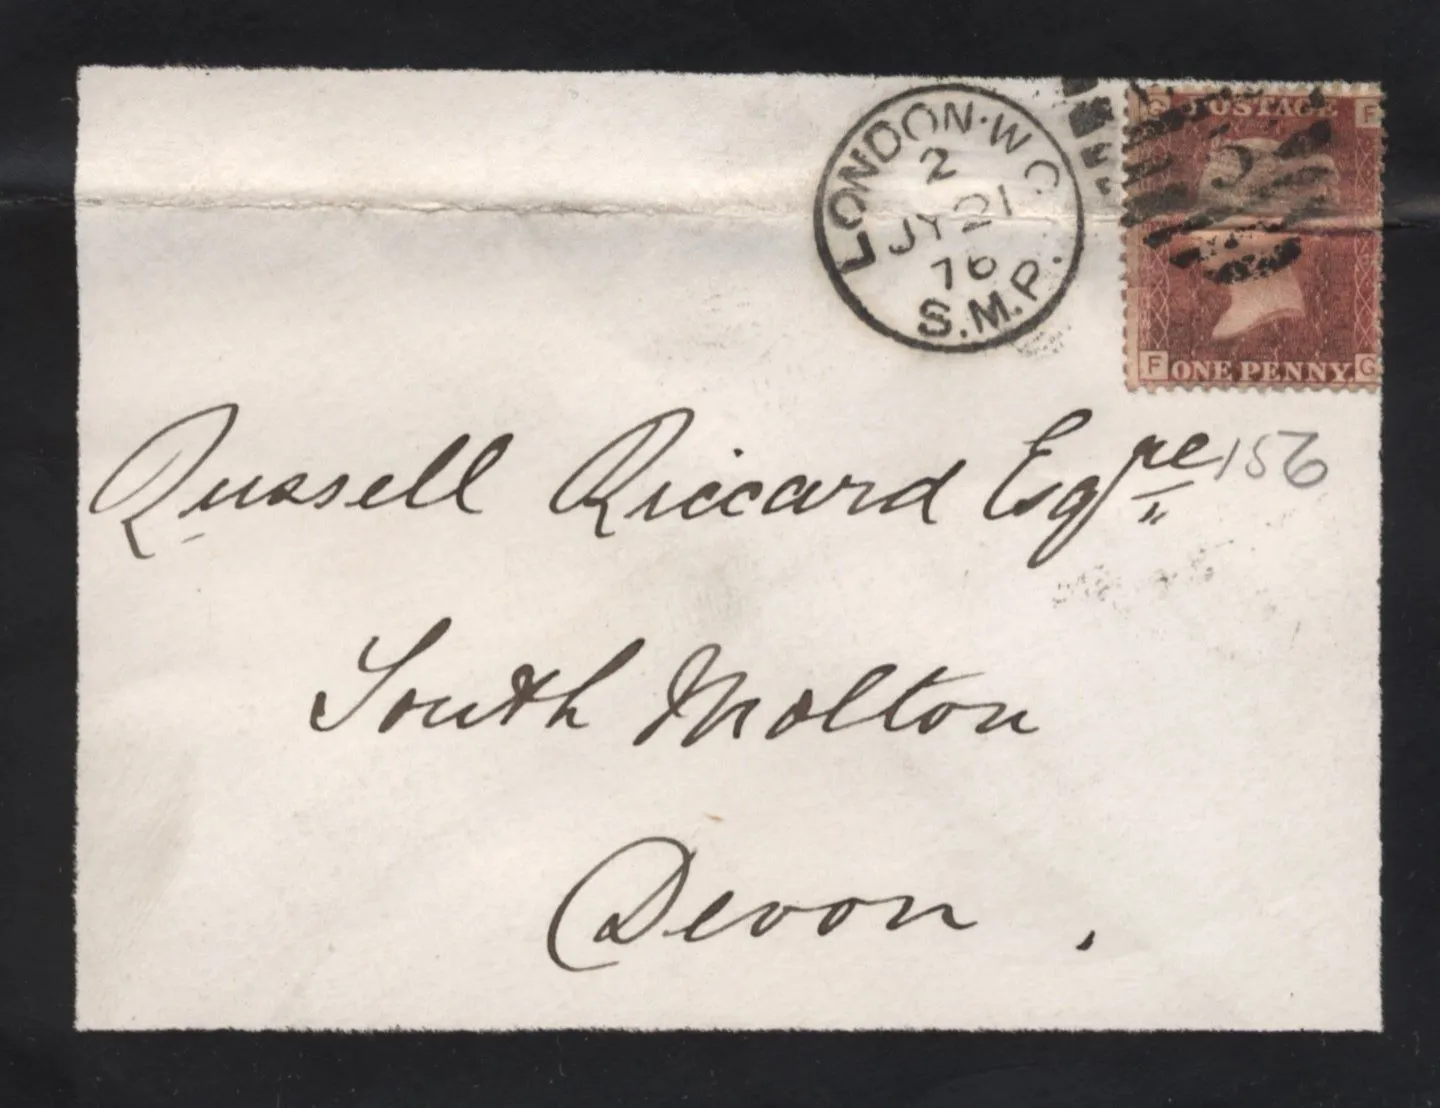 LONDON·W.C.
2
JY 21
76
S.M.P.
G POSTAGE F
F ONE PENNY G
Russell Riccard Esqre
156
South Molton
Devon.